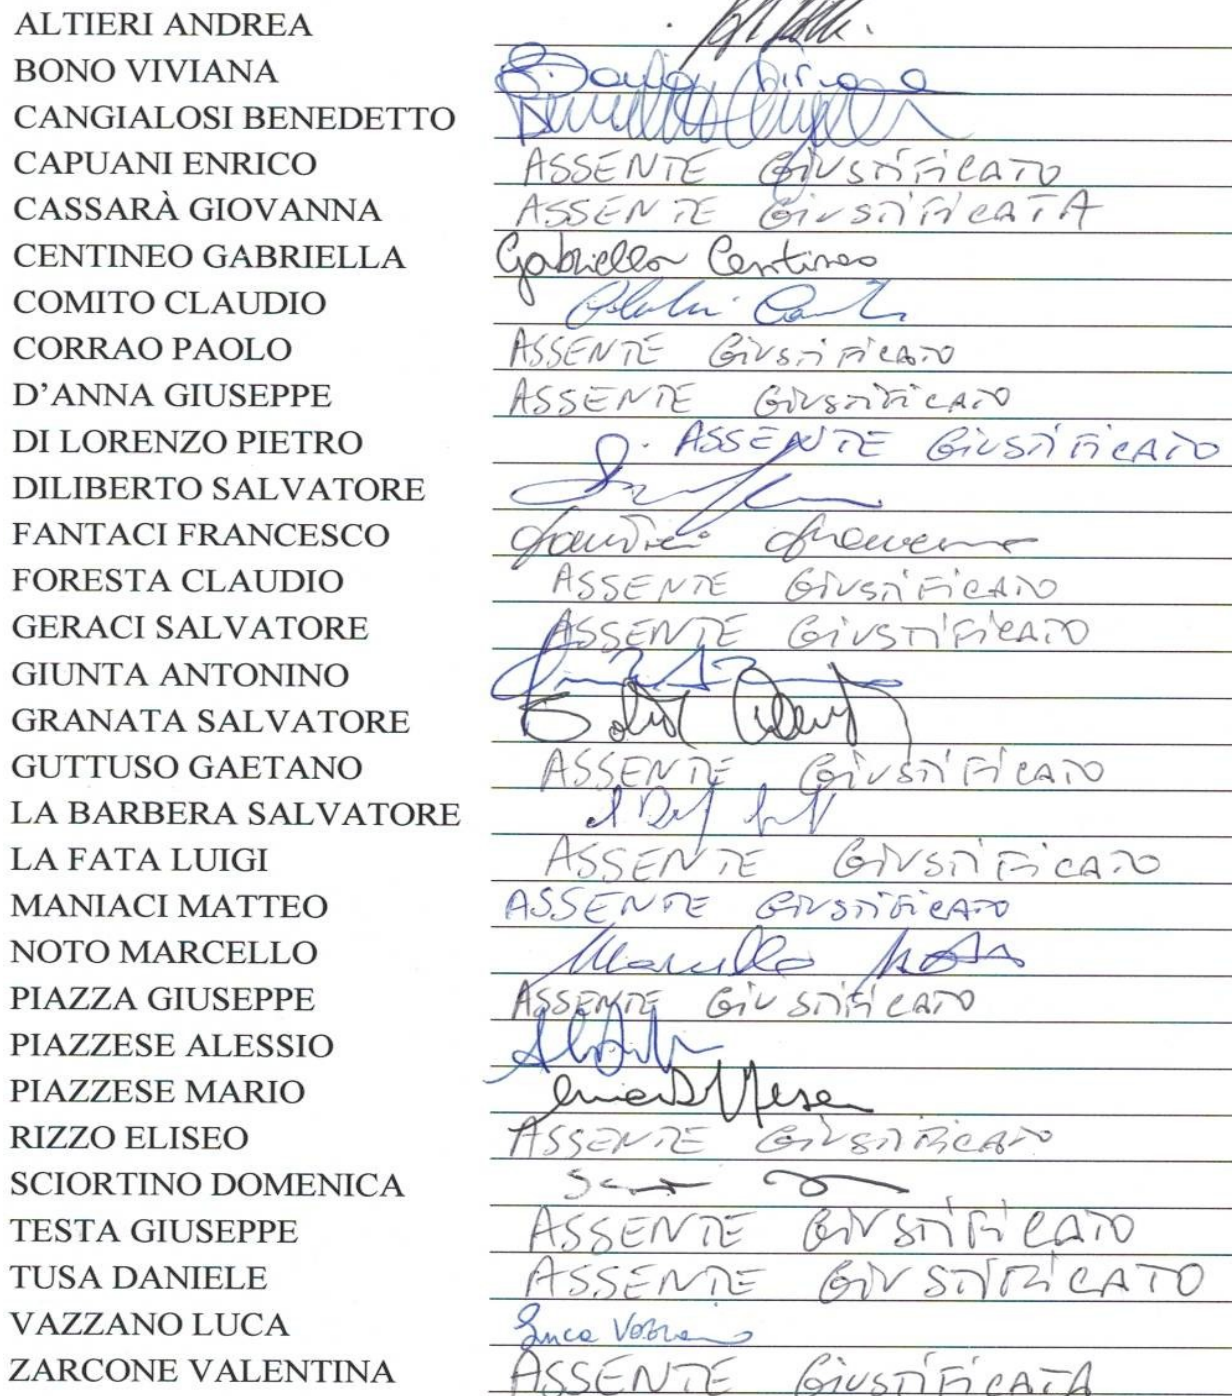 ALTIERI ANDREA
BONO VIVIANA
CANGIALOSI BENEDETTO
CAPUANI ENRICO ASSENTE GIUSTIFICATO
CASSARÀ GIOVANNA ASSENTE GIUSTIFICATA
CENTINEO GABRIELLA Gabriella Centineo
COMITO CLAUDIO
CORRAO PAOLO ASSENTE GIUSTIFICATO
D'ANNA GIUSEPPE ASSENTE GIUSTIFICATO
DI LORENZO PIETRO ASSENTE GIUSTIFICATO
DILIBERTO SALVATORE
FANTACI FRANCESCO
FORESTA CLAUDIO ASSENTE GIUSTIFICATO
GERACI SALVATORE ASSENTE GIUSTIFICATO
GIUNTA ANTONINO
GRANATA SALVATORE
GUTTUSO GAETANO ASSENTE GIUSTIFICATO
LA BARBERA SALVATORE
LA FATA LUIGI ASSENTE GIUSTIFICATO
MANIACI MATTEO ASSENTE GIUSTIFICATO
NOTO MARCELLO Marcello Noto
PIAZZA GIUSEPPE ASSENTE GIUSTIFICATO
PIAZZESE ALESSIO
PIAZZESE MARIO
RIZZO ELISEO ASSENTE GIUSTIFICATO
SCIORTINO DOMENICA
TESTA GIUSEPPE ASSENTE GIUSTIFICATO
TUSA DANIELE ASSENTE GIUSTIFICATO
VAZZANO LUCA Luca Vazzano
ZARCONE VALENTINA ASSENTE GIUSTIFICATA